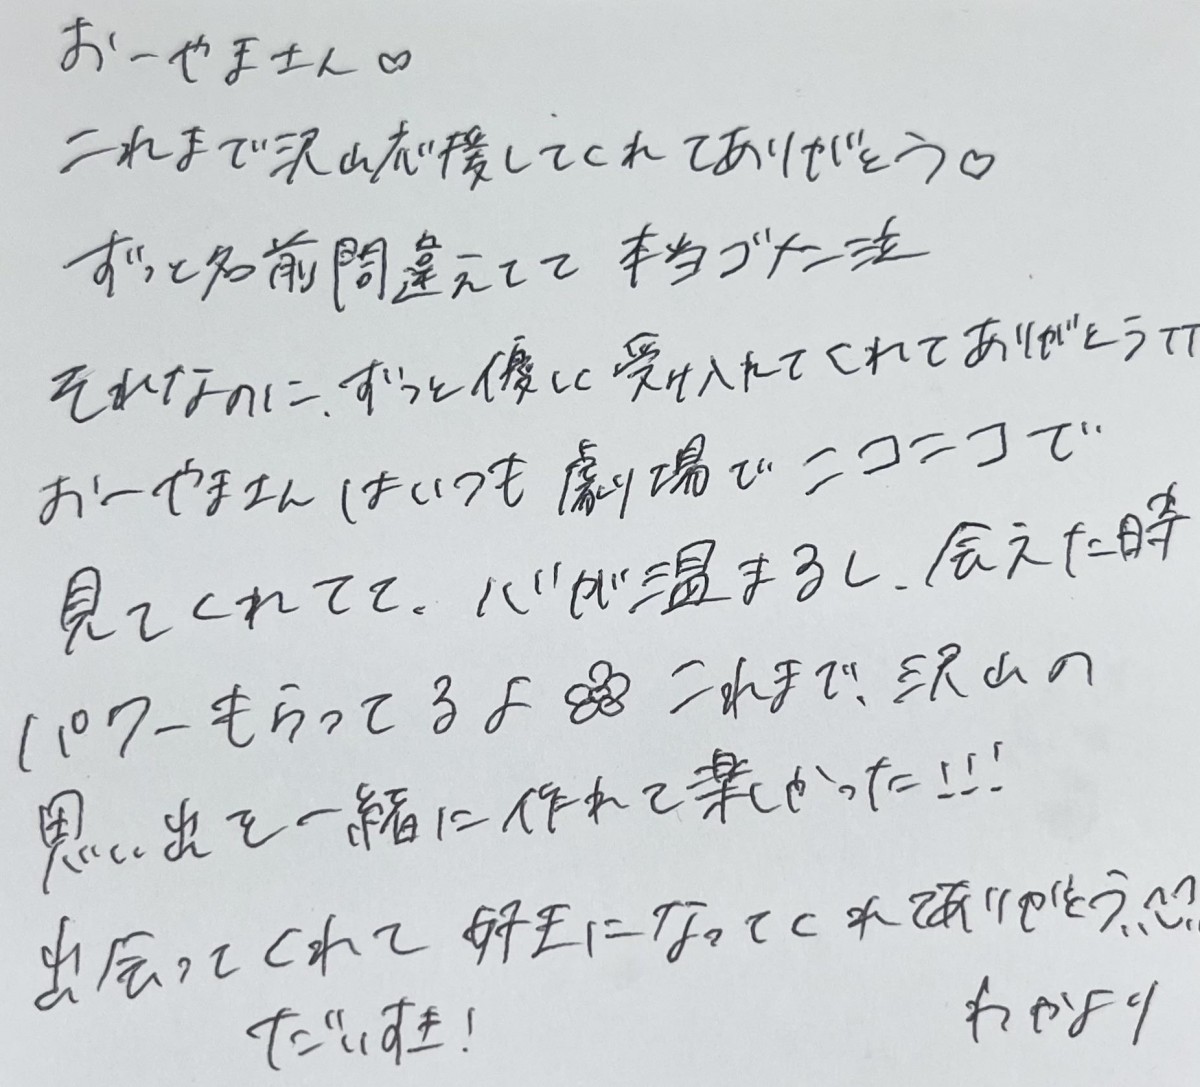 おーやまさん♡
これまで沢山応援してくれてありがとう♡
ずっと名前間違えてて本当ゴメン泣
それなのに、ずっと優しく受け入れてくれてありがとうTT
おーやまさんはいつも劇場でニコニコで
見てくれてて、心が温まるし、会えた時
パワーもらってるよ これまで、沢山の
思い出を一緒に作れて楽しかった!!!
出会ってくれて好きになってくれてありがとう
だいすき!
わかより